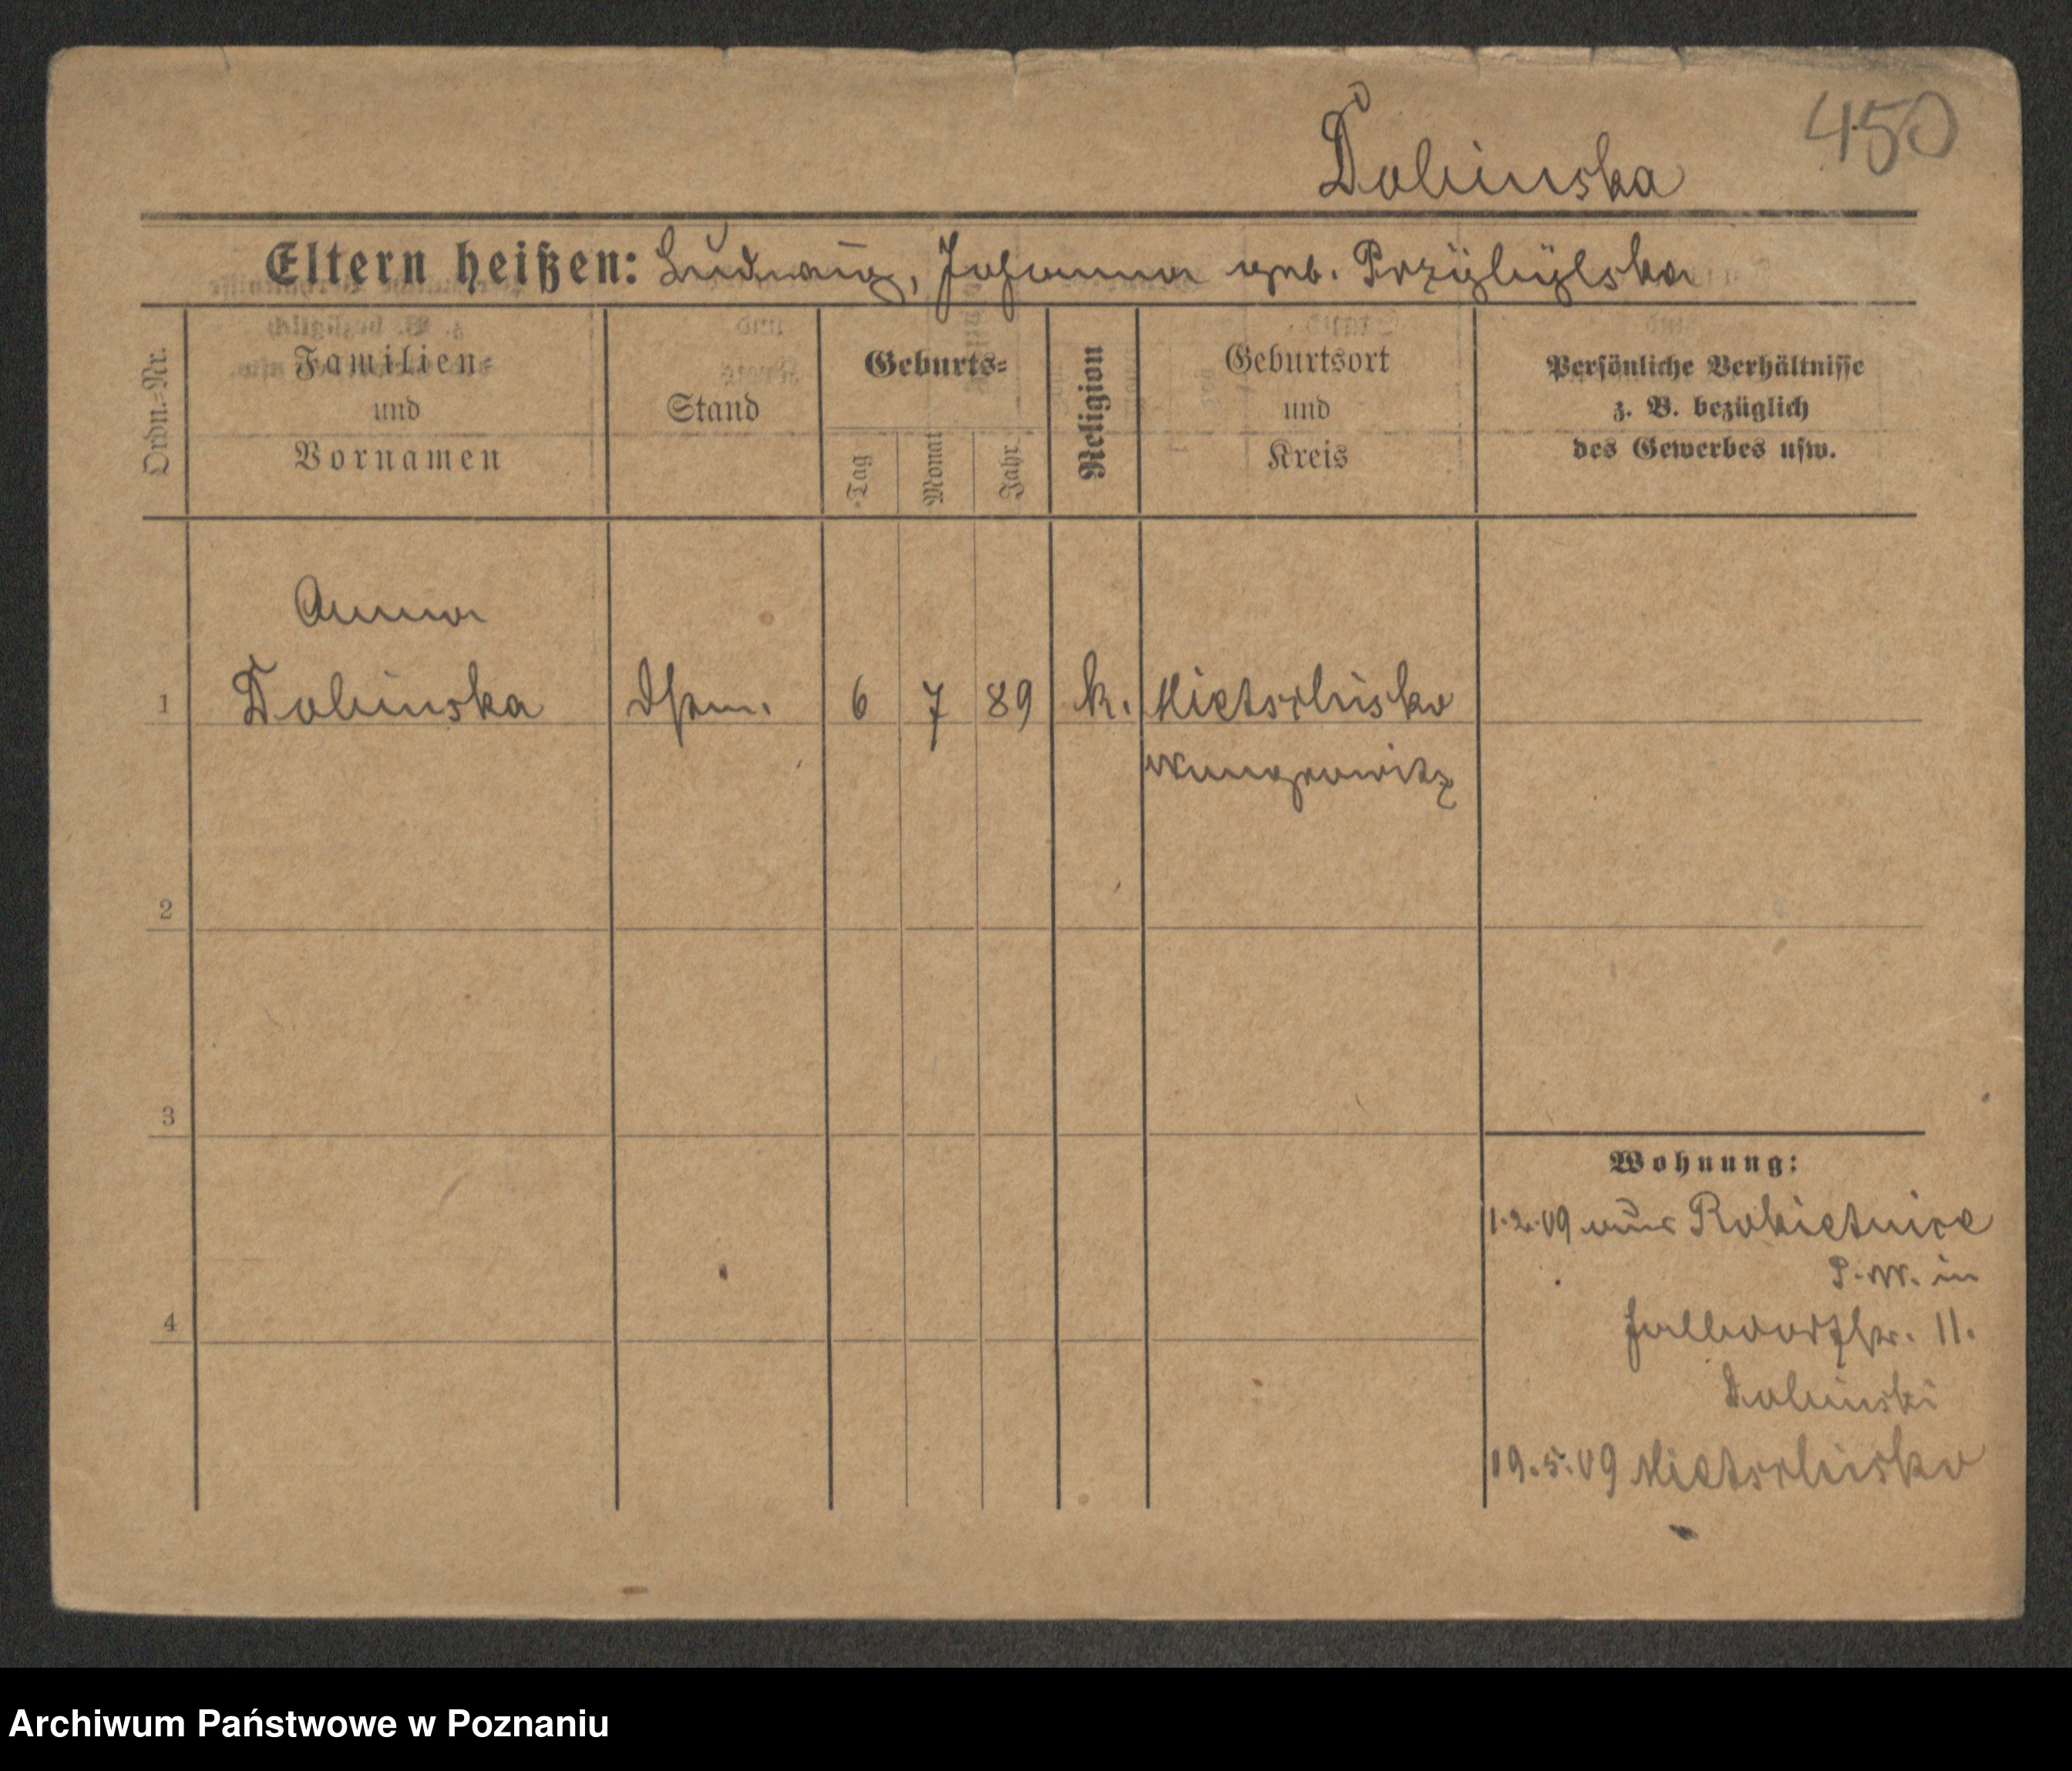 Dobinska
450
Eltern heißen: Ludwig, Johanna geb. Przÿbÿlska
Ordn.-Nr.
Familien-
und
Vornamen
Stand
Geburts-
Tag
Monat
Jahr
Religion
Geburtsort
und
Kreis
Persönliche Verhältnisse
z. B. bezüglich
des Gewerbes usw.
Anna
1 Dobinska 6 7 89 k. Mietschisko
Wongrowitz
2
3
4
Wohnung:
1.2.09 aus Rokietnice
P.-W. in
11.
Dobinski
19.5.09 Mietschisko
Archiwum Państwowe w Poznaniu